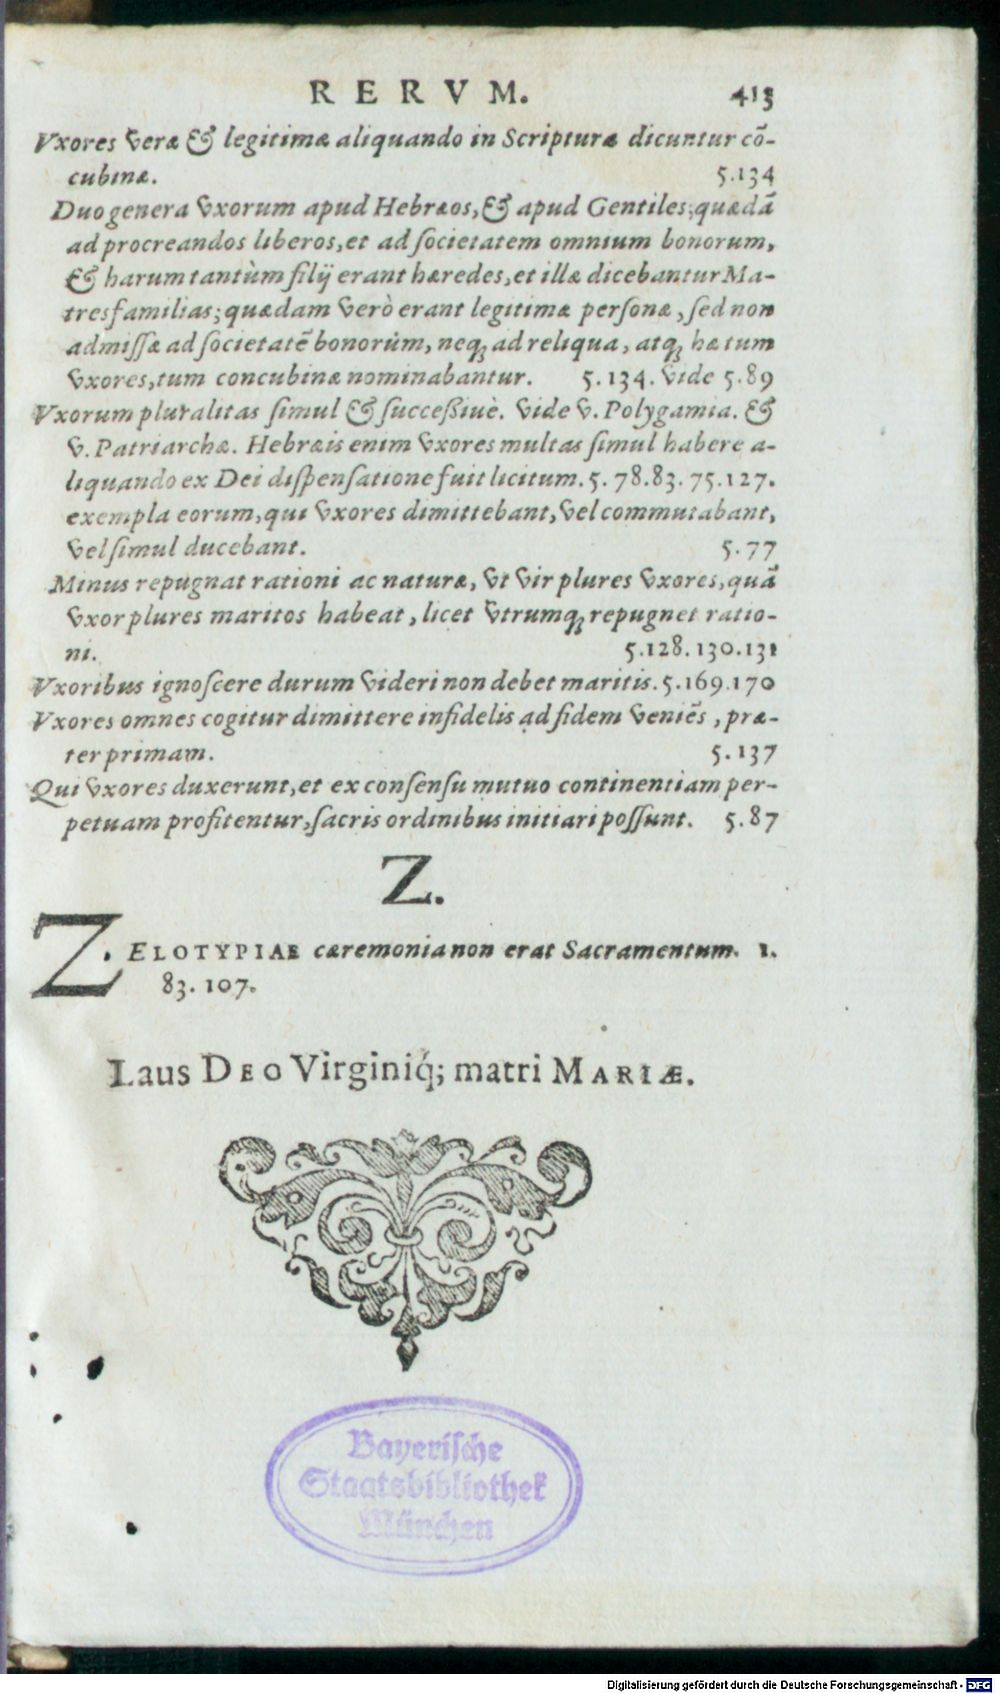 RERVM. 413
Vxores veræ & legitimæ aliquando in Scripturæ dicuntur cō-
cubinæ. 5.134
Duo genera vxorum apud Hebræos, & apud Gentiles; quædā
ad procreandos liberos, et ad societatem omnium bonorum,
& harum tantùm filij erant hæredes, et illæ dicebantur Ma-
tresfamilias; quædam verò erant legitimæ personæ, sed non
admissæ ad societatē bonorùm, neq; ad reliqua, atq; hæ tum
vxores, tum concubinæ nominabantur. 5.134. vide 5.89
Vxorum pluralitas simul & successiuè. vide v. Polygamia. &
v. Patriarchæ. Hebræis enim vxores multas simul habere a-
liquando ex Dei dispensatione fuit licitum. 5.78.83.75.127.
exempla eorum, qui vxores dimittebant, vel commutabant,
vel simul ducebant. 5.77
Minus repugnat rationi ac naturæ, vt vir plures vxores, quā
vxor plures maritos habeat, licet vtrumq; repugnet ratio-
ni. 5.128.130.131
Vxoribus ignoscere durum videri non debet maritis. 5.169.170
Vxores omnes cogitur dimittere infidelis ad fidem veniēs, præ-
ter primam. 5.137
Qui vxores duxerunt, et ex consensu mutuo continentiam per-
petuam profitentur, sacris ordinibus initiari possunt. 5.87
Z.
ZELOTYPIAE cæremonia non erat Sacramentum. 1.
83.107.
Laus DEO Virginiq́; matri MARIÆ.
Bayerische
Staatsbibliothek
München
Digitalisierung gefördert durch die Deutsche Forschungsgemeinschaft - DFG